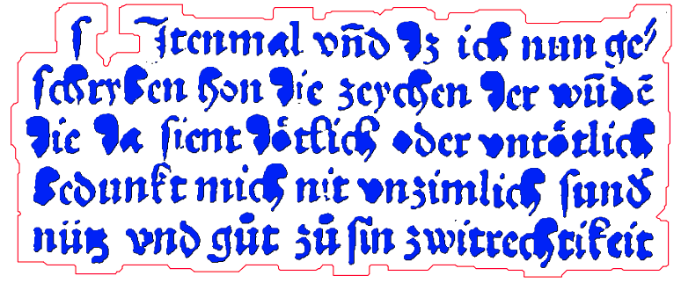 s Jtenmal vñd dz ich nun ge⸗
schryben hon die zeychen der wūdē
die da sient dötlich oder vntötlich
bedunkt mich nit vnzimlich sund
nütz vnd gůt zů sin zwitrechtikeit